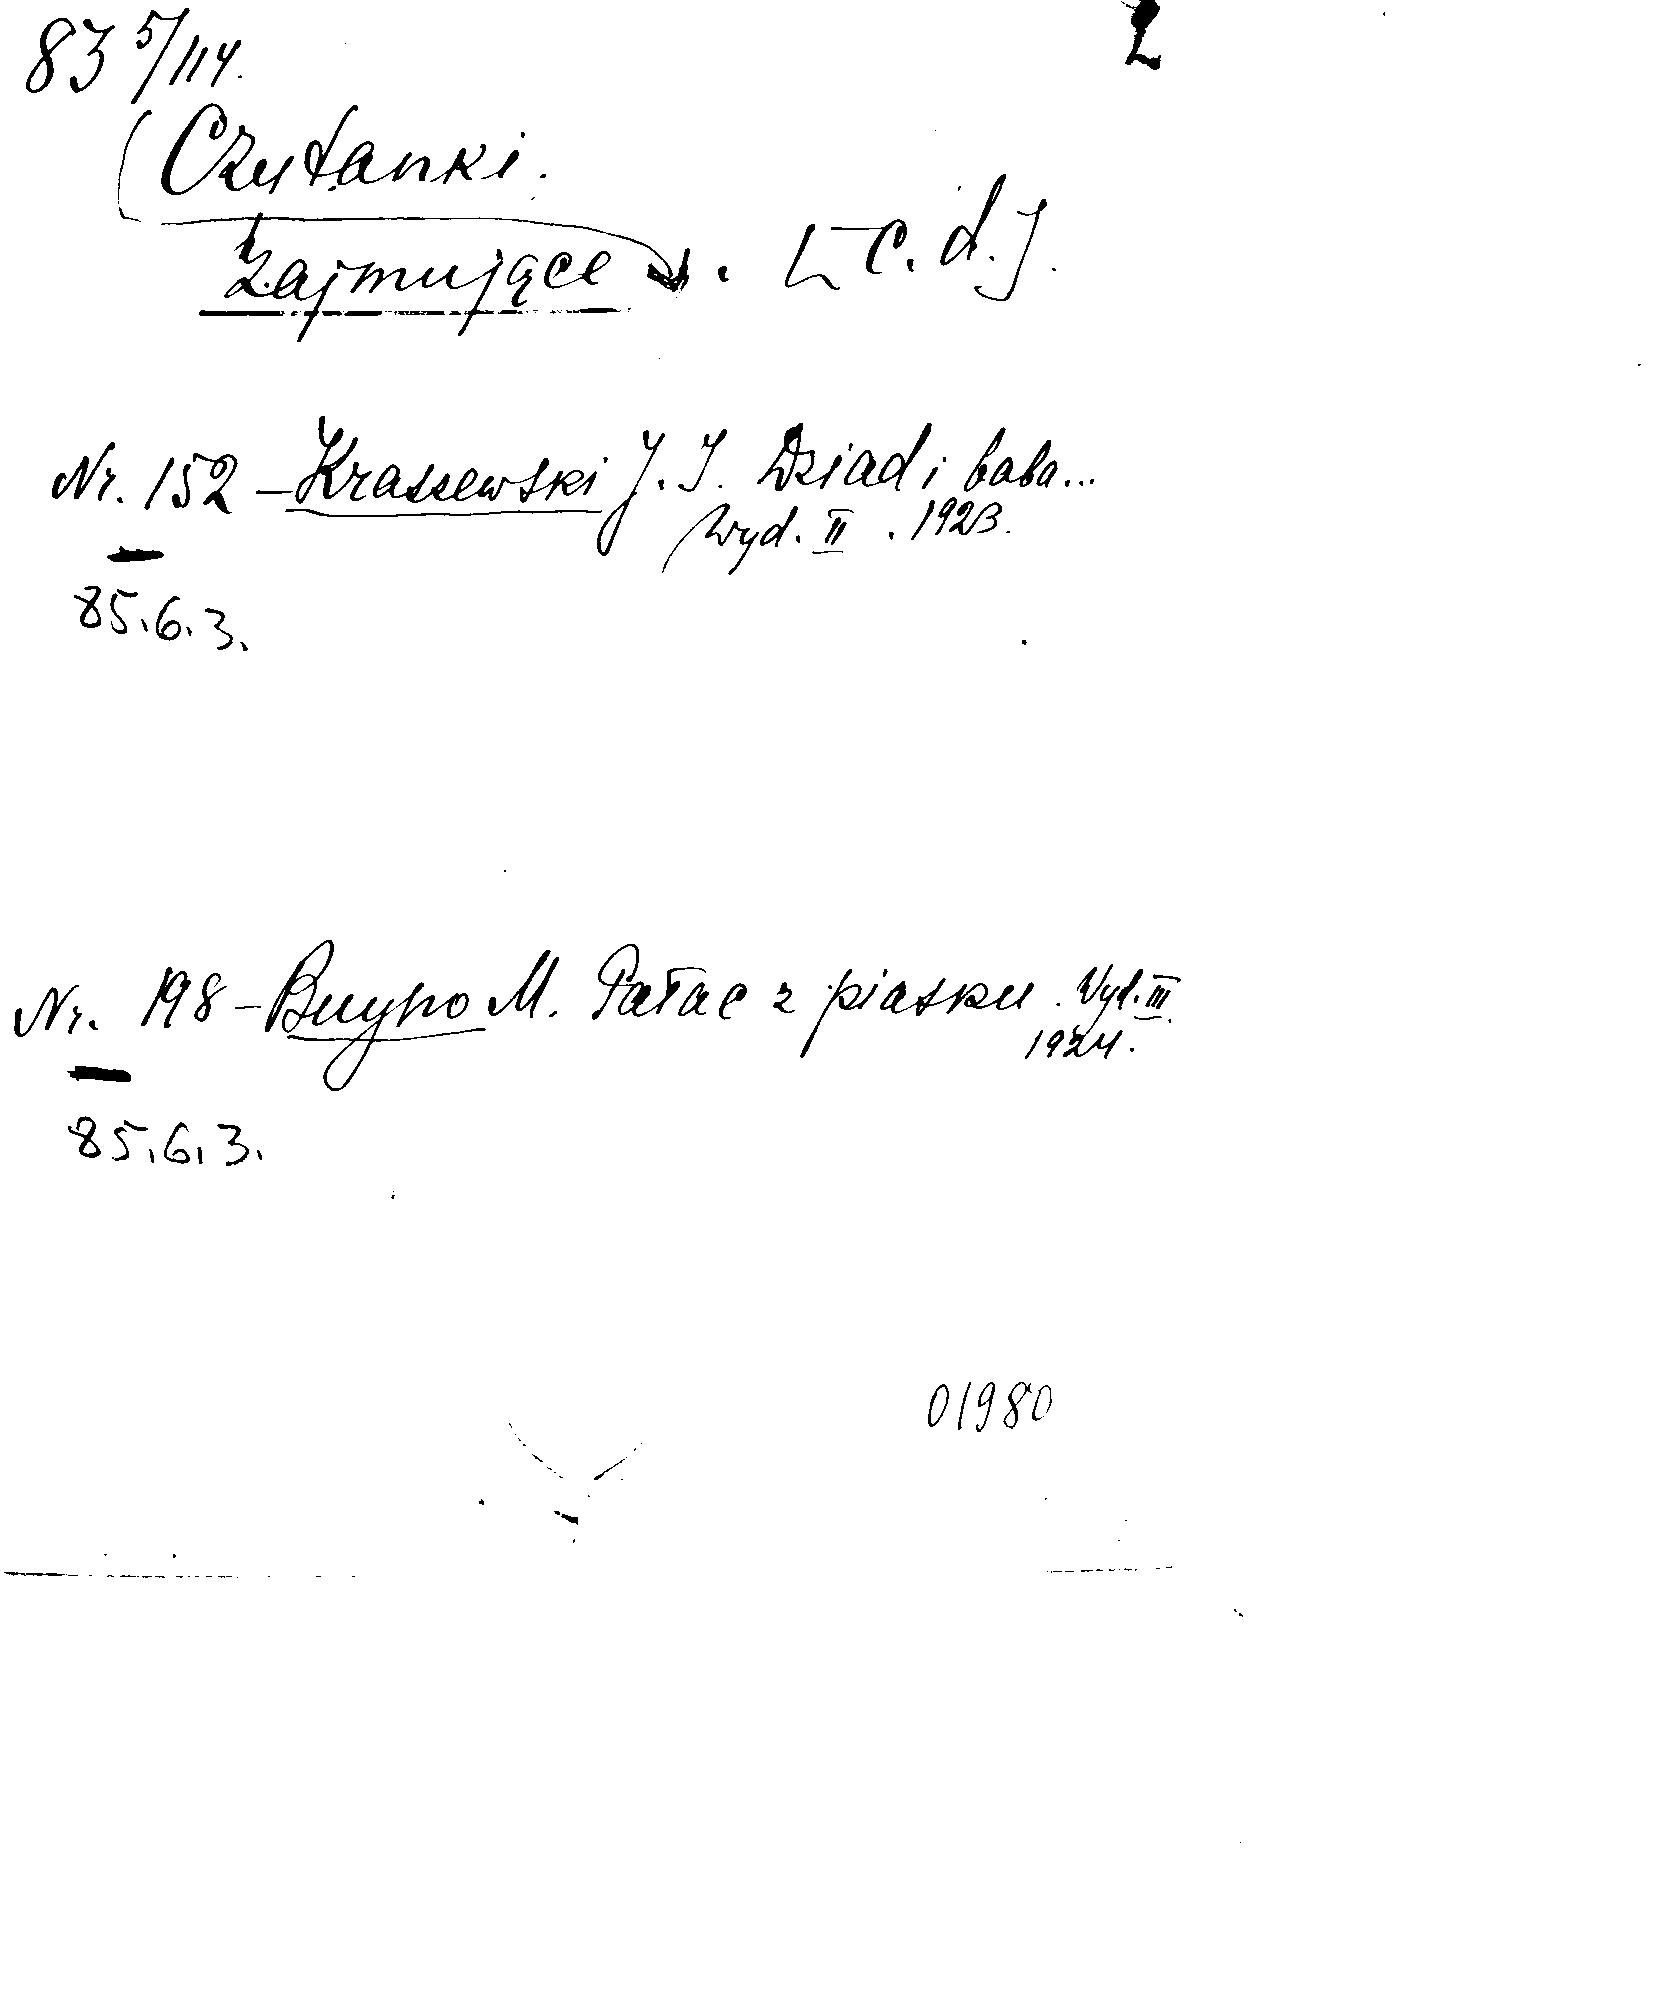 83 5/114.
2
Czytanki.
zajmujące . [C. d.].
Nr. 152 – Kraszewski J. I. Dziad i baba...
Wyd. II . 1923.
85.6.3.
Nr. 198 – Buyno M. Pałac z piasku . Wyd. III.
1924.
85.6.3.
01980